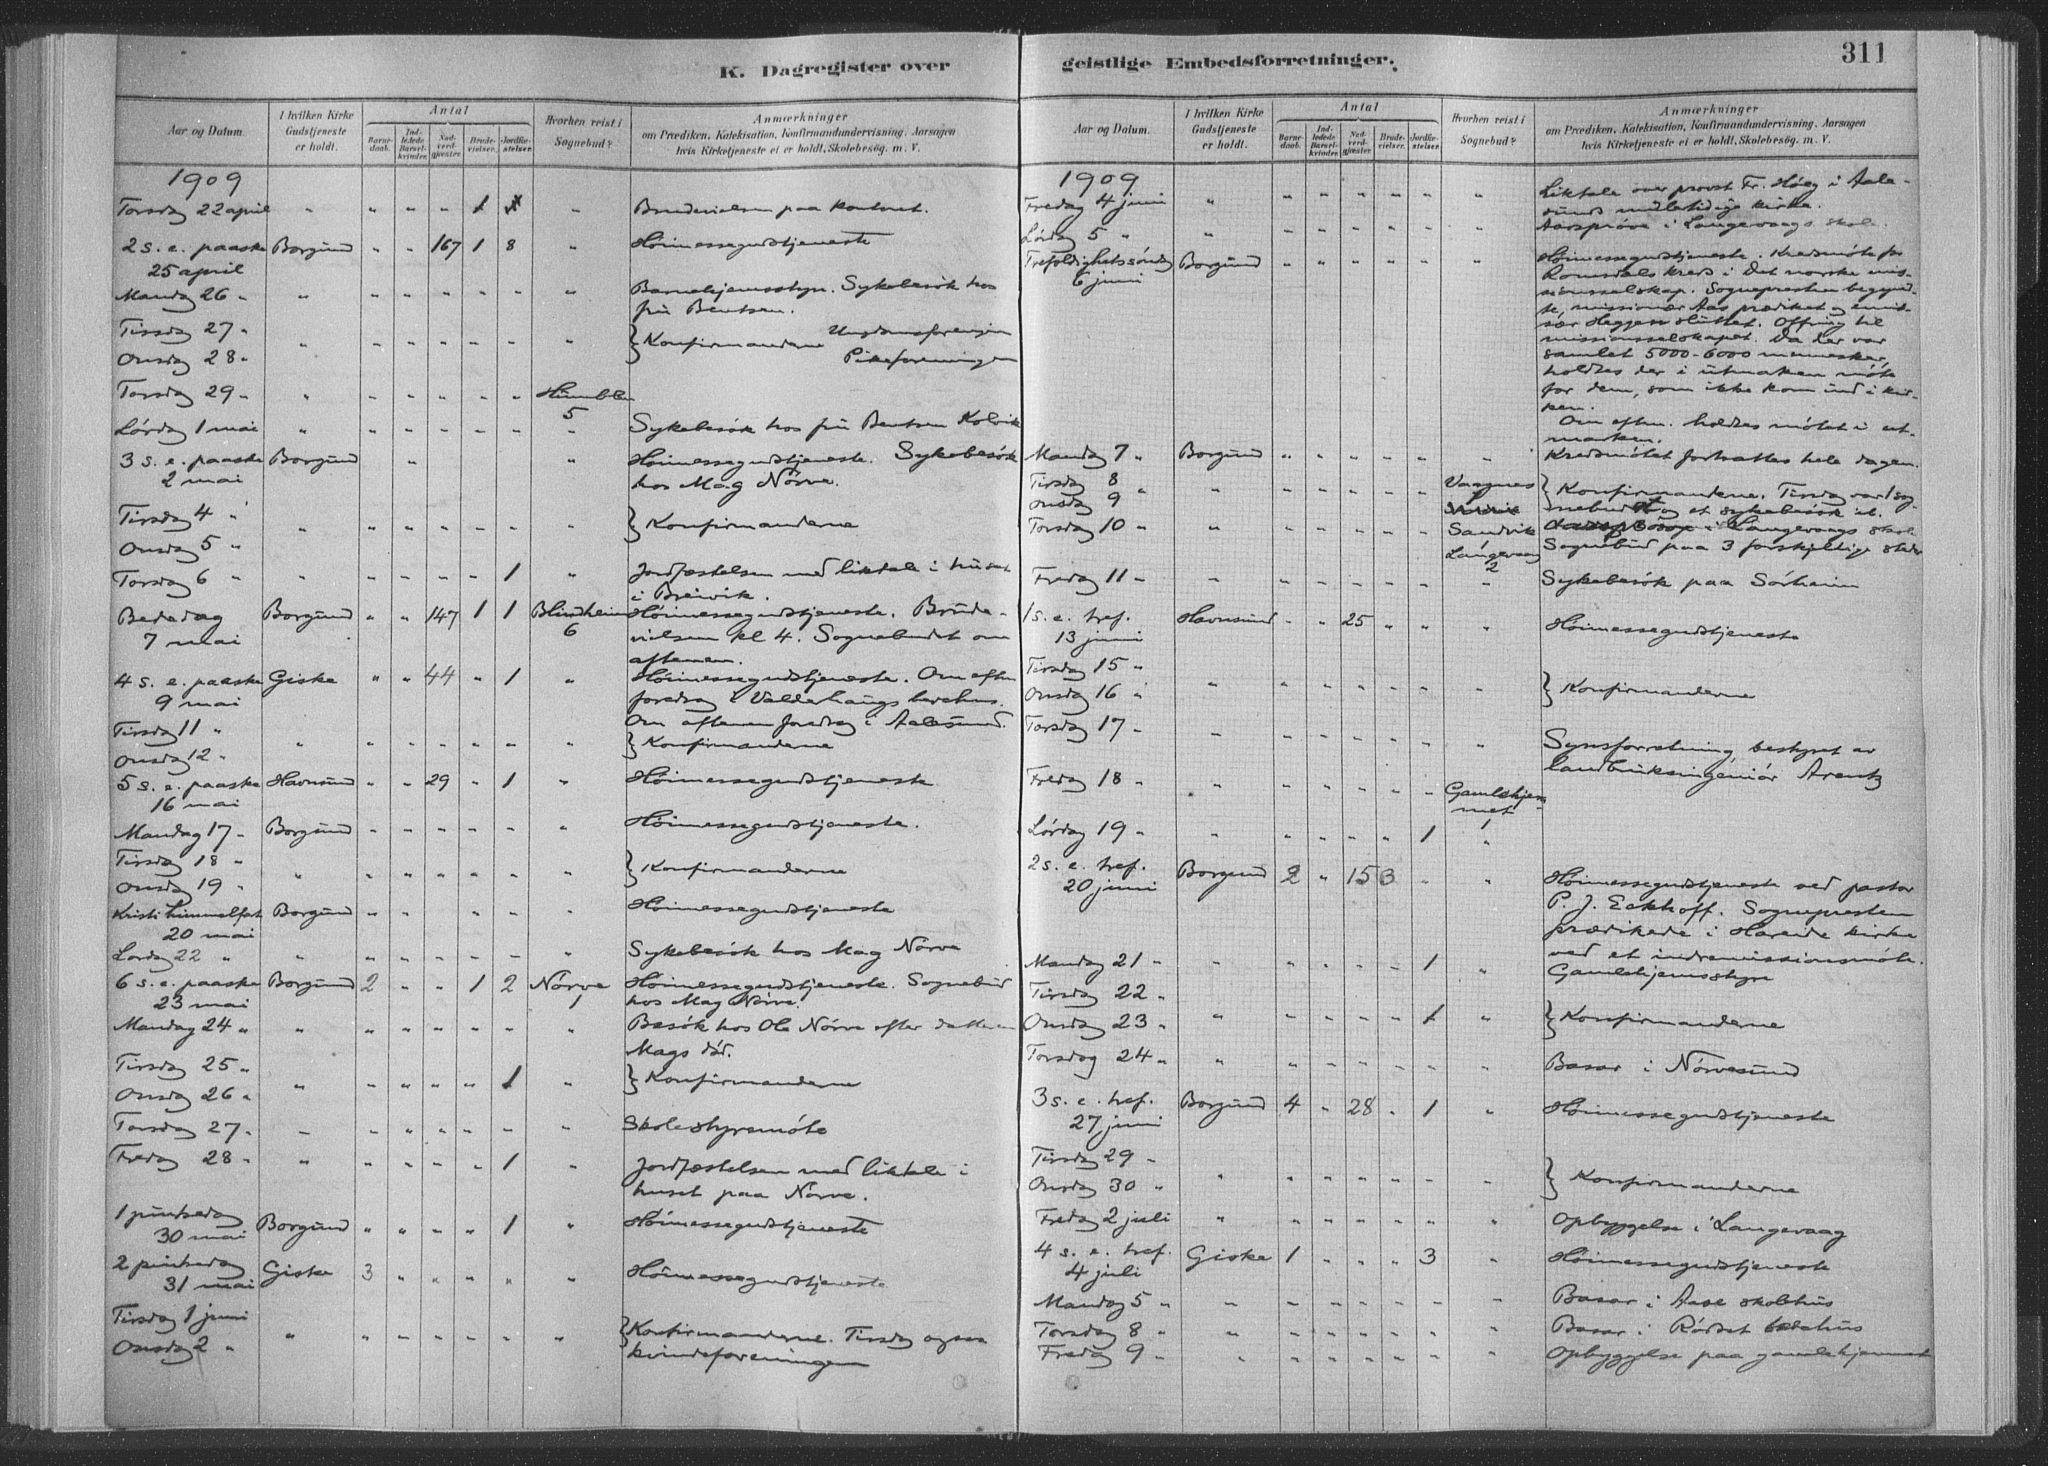 K. Dagregister over
Aar og Datum.
I hvilken Kirke Gudstjeneste er holdt.
Antal
Barnedaab.
Indledede Barselkvinder.
Nadverdgjæster.
Brudevielser.
Jordfæstelser.
Hvorhen reist i Sognebud?
Anmærkninger
om Prædiken, Katekisation, Konfirmandundervisning, Aarsagen
hvis Kirketjeneste ei er holdt, Skolebesøg. m. V.
1909
Torsdag 22 april " " " " 1 " Brudevielsen paa kontoret.
2 s. e. paaske Borgund " " 167 1 8 " Høimessegudstjeneste
25 april
Mandag 26 " " " " " " " Barnehjemsstyr. Sykebesøk hos
frü Bentsen.
Tirsdag 27 "
Onsdag 28 " " " " " " " " } Konfirmanderne Ungdomsforeningen
Pikeforeningen
Torsdag 29 " " " " " " " Humblen
5
Lördag 1 mai " " " " " " " Sykebesök hos frü Bentsen Kolvik
3 s. e. paaske Borgünd " " Høimessegudstjeneste. Sykebesök
2 mai hos Mag Nörve.
Tirsdag 4 "
Onsdag 5 " " " " " " " " } Konfirmanderne
Torsdag 6 " " " " " " 1 " Jordfæstelsen med liktale i huset
i Breivik.
Bededag Borgünd " " 147 1 1 Blindheim Høimessegudstjeneste. Brude-
7 mai 6 vielsen kl 4. Sognebudet om
aftenen.
4 s. e. paaske Giske " " 44 " 1 " Høimessegudstjeneste. Om efter
9 mai foredrag i Valderhaugs bedehus.
Om aftenen foredrag i Aalesund.
Tirsdag 11 "
Onsdag 12 " " " " " " " " } Konfirmanderne
5 s. e. paaske Havnsund " " 29 " 1 " Høimessegudstjeneste
16 mai
Mandag 17 " Borgünd " " " " " " Høimessegudstjeneste.
Tirsdag 18 "
Onsdag 19 " " " " " " " " } Konfirmanderne
Kristi himmelfart Borgünd " " " " " " Høimessegudstjeneste
20 mai
Lördag 22 " " " " " " " " Sykebesök hos Mag Nörve
6 s. e. paaske Borgünd 2 " " 1 2 Nörve Høimessegudstjeneste. Sognebud
23 mai 1 hos Mag Nörve.
Mandag 24 " " " " " " " " Besök hos Ole Nörve efter datteren
Mags död.
Tirsdag 25 "
Onsdag 26 " " " " " " 1 " } Konfirmanderne
Torsdag 27 " " " " " " " " Skolestyrsmöte
Fredag 28 " " " " " " 1 " Jordfæstelsen med liktale i
huset paa Nörve.
1 pintsedag Borgünd " " " " 1 " Høimessegudstjeneste
30 mai
2 pintsedag Giske 3 " " " " " Høimessegudstjeneste
31 mai
Tirsdag 1 juni
Onsdag 2 " " " " " " " " } Konfirmanderne. Tirsdag ogsaa
kvindeforeningen
geistlige Embedsforretninger.
311
Aar og Datum.
I hvilken Kirke Gudstjeneste er holdt.
Antal
Barnedaab.
Indledede Barselkvinder.
Nadverdgjæster.
Brudevielser.
Jordfæstelser.
Hvorhen reist i Sognebud?
Anmærkninger
om Prædiken, Katekisation, Konfirmandundervisning, Aarsagen
hvis Kirketjeneste ei er holdt, Skolebesøg. m. V.
1909
Fredag 4 juni " " " " " " " Liktale over provst Fr. Høeg i Aale-
sunds midlertidige kirke.
Lördag 5 " " " " " " " " Aarspröve i Langevaags skole
Trefoldighetssöndag Borgünd " " " " " " Høimessegudstjeneste. Kredsmöte for
6 juni Romsdals kreds i Det norske mis-
sionsselskap. Sognepresten begynd-
te, missionær Aas prædiket og emis-
sær Heggem sluttet. Offring til
missionsselskapet. Da der var
samlet 5000-6000 mennesker,
holdtes der i utmarken möte
for dem, som ikke kom ind i kir-
ken.
Om eftm. holdtes mötet i ut-
marken.
Mandag 7 " Borgünd " " " " " " Kredsmötet fortsattes hele dagen.
Tirsdag 8
Onsdag 9 " " " " " " " Vaagnes } Konfirmanderne. Tirsdag var 1 sog-
1 nebud og et sykebesök
Torsdag 10 " " " " " " " Sandvik Langevaags skole
1 Sognebud paa 3 forskjellige steder
Langevaag
2
Fredag 11 " " " " " " " " Sykebesök paa Sörheim
1 s. e. tref. Havnsund " " 25 " " " Høimessegudstjeneste
13 juni
Tirsdag 15 "
Onsdag 16 " " " " " " " " } Konfirmanderne
Torsdag 17 " " " " " " " " Synsforretning bestyret av
landbruksingeniör Arentz
Fredag 18 " " " " " " " Gamlehjem-
met
1
Lördag 19 " " " " " " 1 "
2 s. e. tref. Borgünd 2 " 153 " " Høimessegudstjeneste ved pastor
20 juni P. J. Eckhoff. Sognepresten
prædikede i Hareide kirke
ved et indremissionsmöte.
Mandag 21 " 1 " Gamlehjemsstyre
Tirsdag 22 "
Onsdag 23 " " " " " " 1 " } Konfirmanderne
Torsdag 24 " " " " " " " " Basar i Nörvesund
3 s. e. tref. Borgünd 4 " 28 " 1 " Høimessegudstjeneste
27 juni
Tirsdag 29 "
Onsdag 30 " " " " " " " " } Konfirmanderne
Fredag 2 juli " " " " " " " Opbyggelse i Langevaag
4 s. e. tref. Giske 1 " " " 3 " Høimessegudstjeneste
4 juli
Mandag 5 " " " " " " " " Basar i Aase skolehus
Torsdag 8 " " " " " " " " Basar i Rödset bedehus
Fredag 9 " " " " " " " " Opbyggelse paa gamlehjemmet